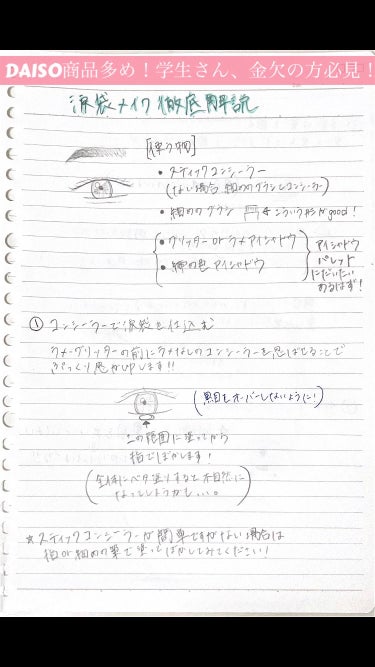 DAISO商品多め！学生さん、金欠の方必見！
涙袋メイク徹底解説
[使う物]
・スティックコンシーラー
(ない場合、細めのブラシとコンシーラー)
・細めのブラシ ←こういう形がgood！
・グリッターorラメアイシャドウ
・締め色アイシャドウ
アイシャドウ
パレット
にだいたい
あるはず！
① コンシーラーで涙袋を仕込む
ラメ・グリッターの前にラメなしのコンシーラーを忍ばせることで
ぷっくり感がUPします!!
(黒目をオーバーしないように！)
この範囲に塗ってから
指でぼかします！
(全体にベタ塗りすると不自然に
なってしまうかも...。)
☆スティックコンシーラーが簡単ですがない場合は
指or細めの筆で塗ってぼかしてみてください！